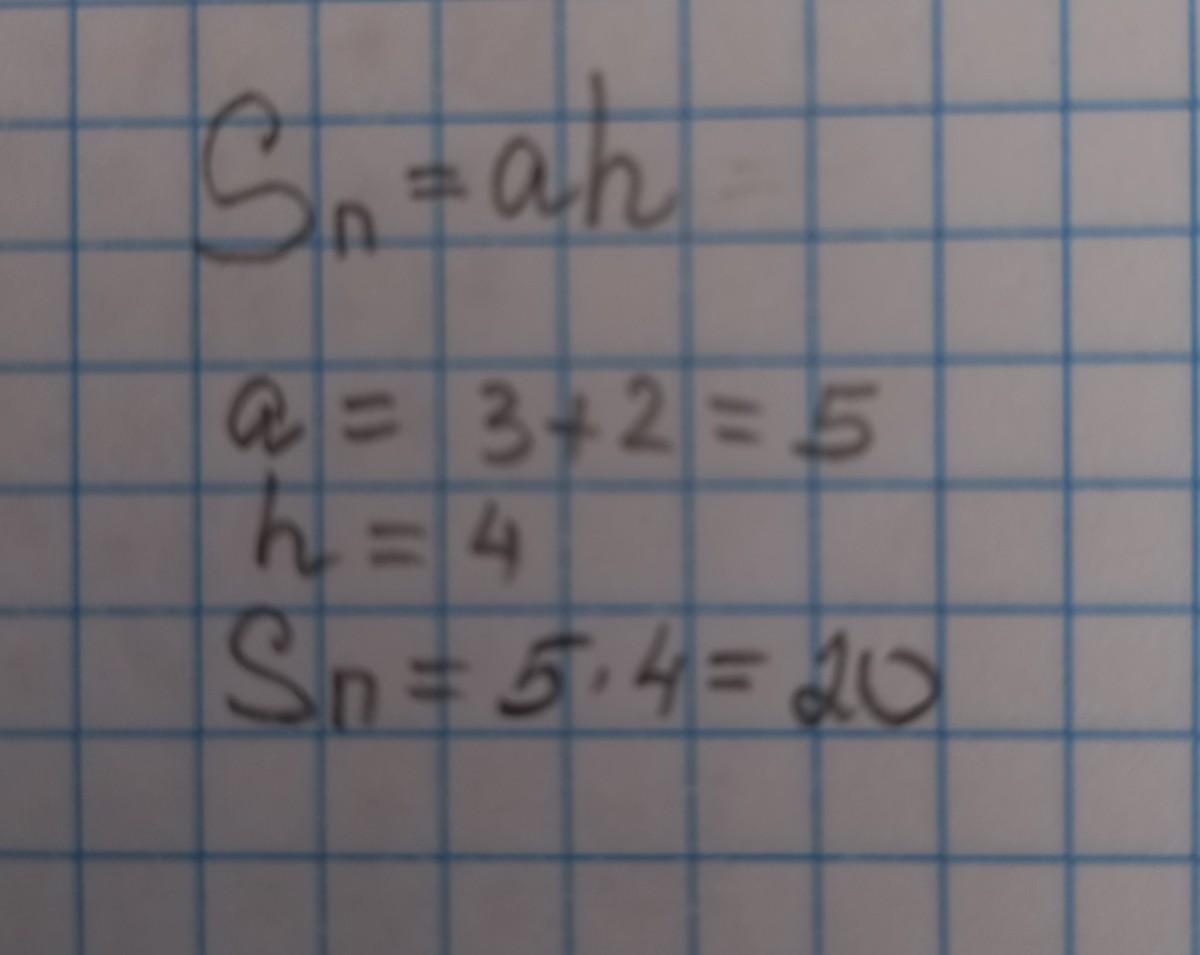 Sп = ah
a = 3+2 = 5
h = 4
Sп = 5·4 = 20